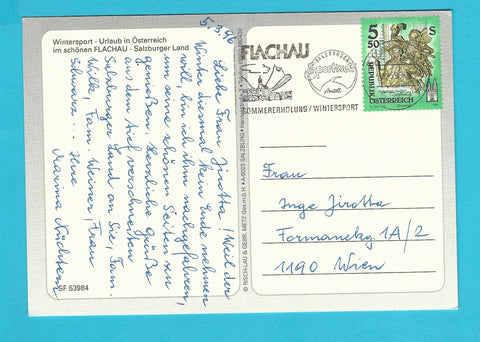 Wintersport - Urlaub in Österreich
im schönen FLACHAU - Salzburger Land
5.3.96
Liebe Frau Jirotta! Weil der
Winter diesmal kein Ende nehmen
will, bin ich ihm nachgefahren,
um seine schönen Seiten zu
genießen. Herzliche Grüße
aus dem tief verschneiten
Salzburger Land an Sie, Fam.
Wilke, Fam. Weiner, Frau
Schwarz... Ihre
Marina
SF 53984
© RISCH-LAU & GEBR. METZ Ges.m.b.H. • A-5023 SALZBURG •
FLACHAU
SALZBURGER
Sportwelt
Amadé
SOMMERERHOLUNG / WINTERSPORT
5 50 S
REPUBLIK
ÖSTERREICH
Frau
Inge Jirotta
Formanekg. 1A/2
1190 Wien